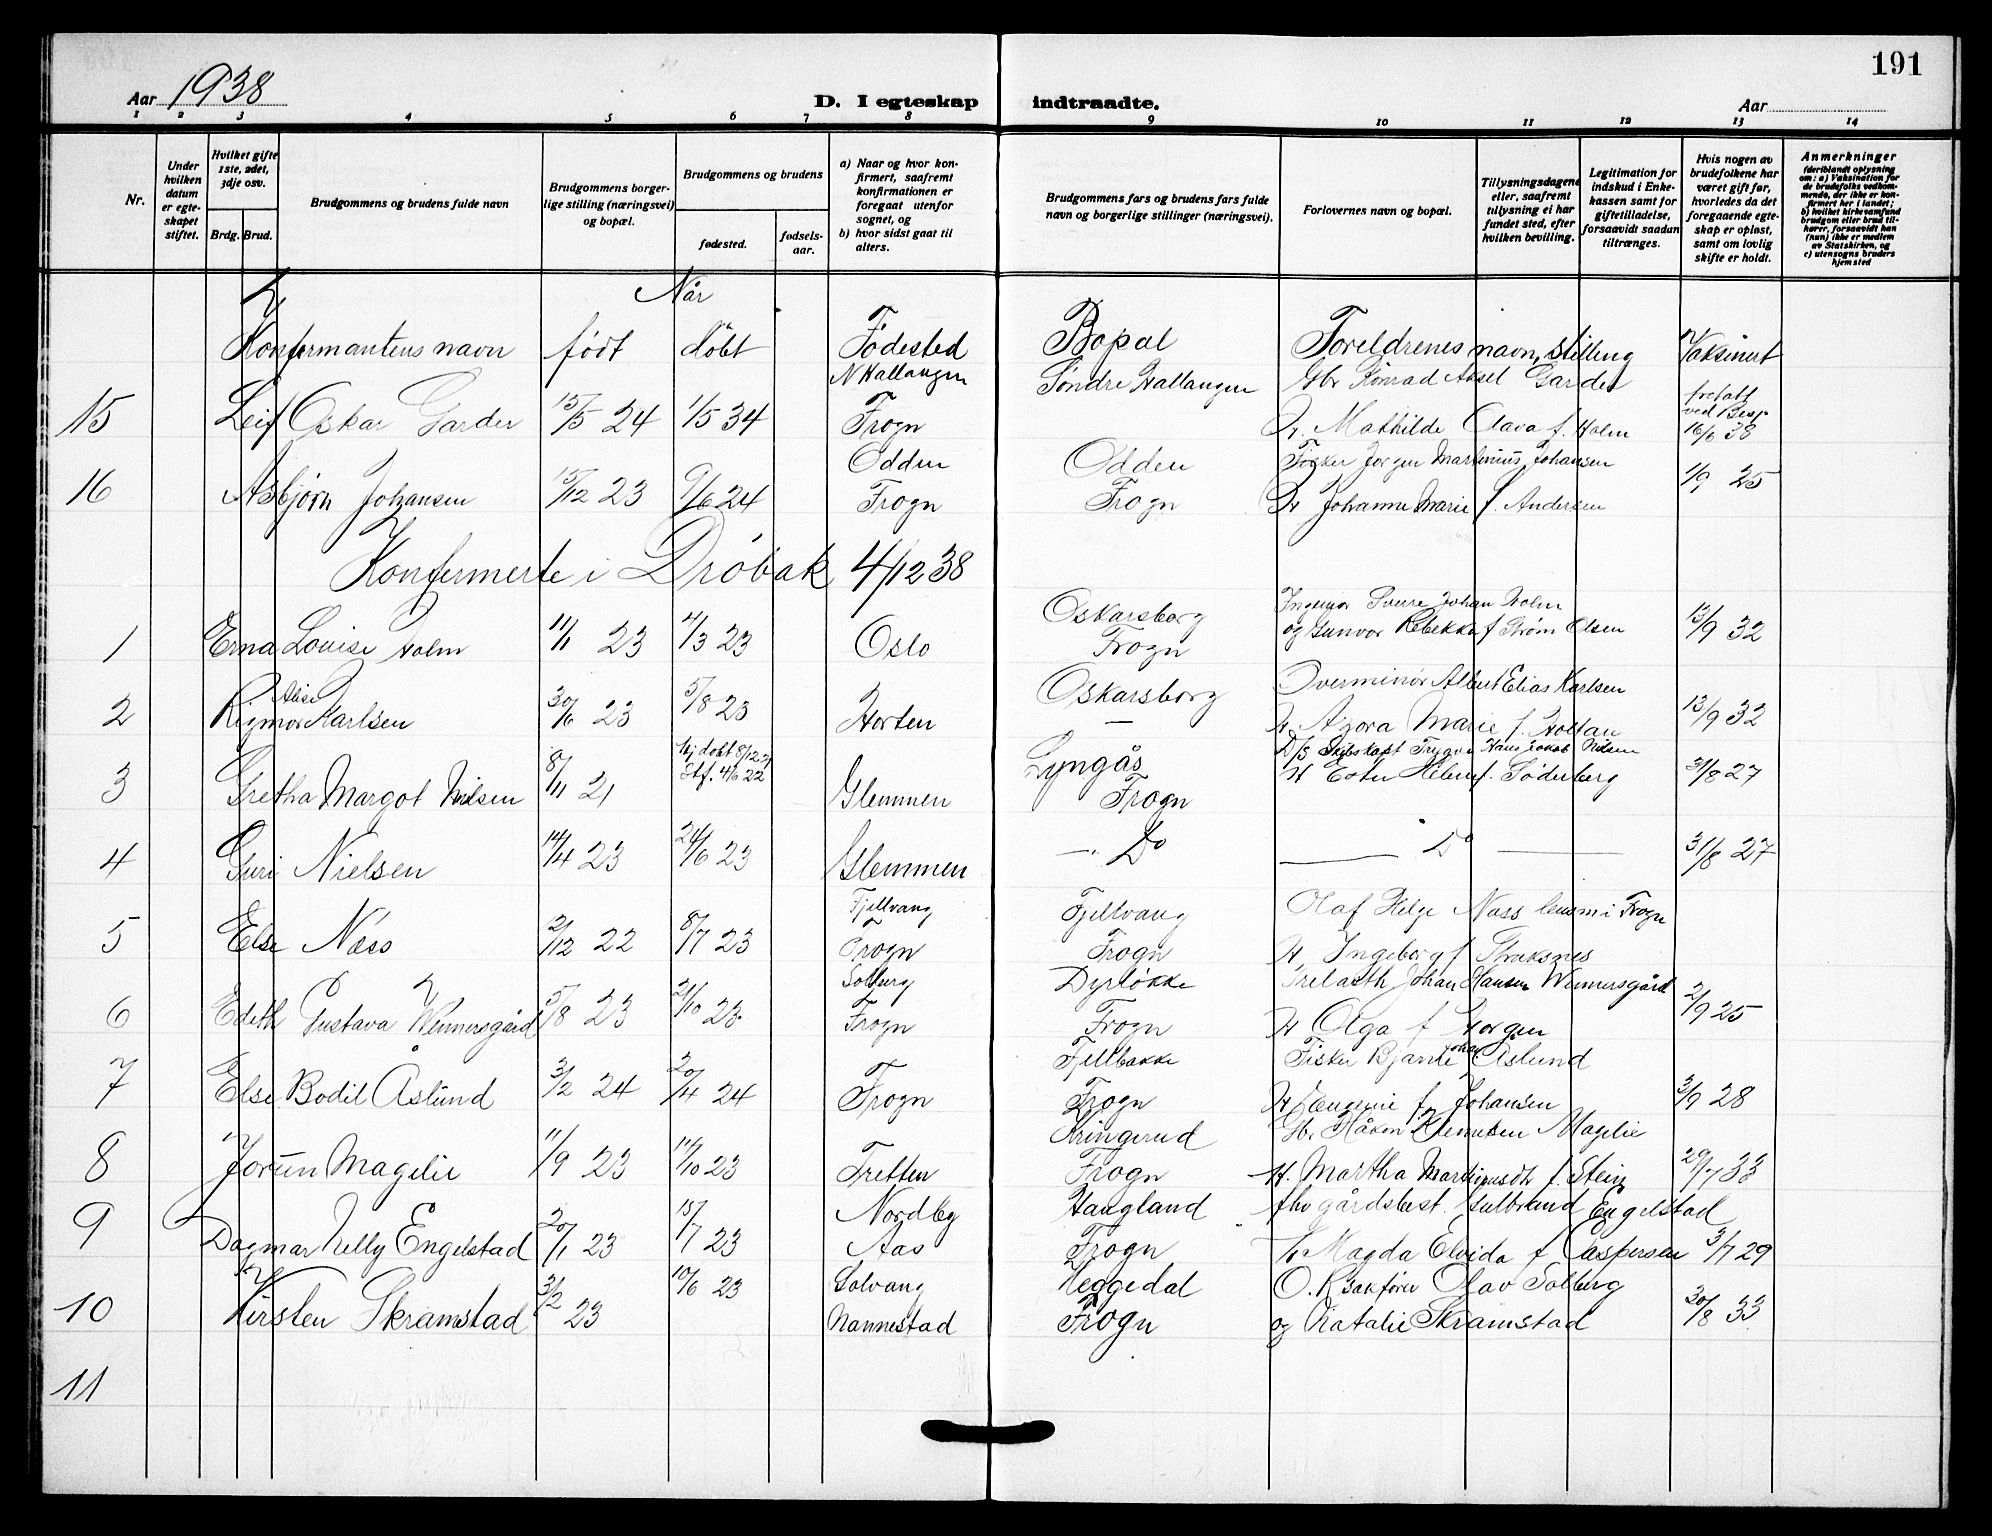 191
Aar 1938
D. I egteskap indtraadte.
Aar
1 2 3 4 5 6 7 8 9 10 11 12 13 14
Nr.
Under hvilken datum er egteskapet stiftet.
Hvilket gifte 1ste, 2det, 3dje osv.
Brdg. Brud.
Brudgommens og brudens fulde navn
Brudgommens borgerlige stilling (næringsvei) og bopæl.
Brudgommens og brudens
fødested.
fødselsaar.
a) Naar og hvor konfirmert, saafremt konfirmationen er foregaat utenfor sognet, og
b) hvor sidst gaat til alters.
Brudgommens fars og brudens fars fulde navn og borgerlige stillinger (næringsvei).
Forlovernes navn og bopæl.
Tillysningsdagene eller, saafremt tillysning ei har fundet sted, efter hvilken bevilling.
Legitimation for indskud i Enkekassen samt for giftetilladelse, forsaavidt saadan tiltrænges.
Hvis nogen av brudefolkene har været gift før, hvorledes da det foregaaende egteskap er opløst, samt om lovlig skifte er holdt.
Anmerkninger (deriblandt oplysning om: a) Vaksination for de brudefolks vedkommende, der ikke er konfirmert her i landet; b) hvilket kirkesamfund brudgom eller brud tilhører, forsaavidt han (hun) ikke er medlem av Statskirken, og c) utensogns bruders hjemsted
Når
Konfermantens navn født døbt Fødested Bopæl Foreldrenes navn, stilling Vaksinert
N Hallangen Søndre Hallangen Gbr Konrad Aksel Garder
15 Leif Oskar Garder 15/5 24 1/5 34 Frogn H. Mathilde Olava f. Holm fritatt ved Besp 16/6 38
Odden Odden Fisker Jørgen Martinius Johansen
16 Asbjørn Johansen 15/12 23 9/6 24 Frogn Frogn H Johanne Marie f. Andersen 1/9 25
Konfermerte i Drøbak 4/12 38
Oskarsborg Ingeniør Sverre Johan Holm
1 Erna Louise Holm 11/1 23 4/3 23 Oslo Frogn og Gunvor Rebekka f Strøm Olsen 13/9 32
Oskarsborg Overminør Albert Elias Karlsen
2 Rigmor Alise Karlsen 30/6 23 5/8 23 Horten — H Azora Marie f. Holtan 13/9 32
Hj døbt 8/12 21 Lyngås D/S Skibskapt Trygve Hans Jakob Nilsen
3 Gretha Margot Nilsen 8/11 21 Stf. 4/6 22 Glemmen Frogn H Ester Helene f. Söderberg 31/8 27
4 Guri Nielsen 14/4 23 24/6 23 Glemmen —. Do — Do — 31/8 27
Fjellvang Fjellvang Olaf Helge Næss lensm i Frogn
5 Else Næss 2/12 22 8/7 23 Frogn Frogn H Ingeborg f
Solberg Dyrløkke Trelasth Johan Hansen Wennersgård
6 Edith Gustava Wennersgård 5/8 23 21/10 23 Frogn Frogn H Olga f Horgen 2/9 25
Fjellbakke Fisker Bjarne Johan Åslund
7 Else Bodil Åslund 3/2 24 20/4 24 Frogn Frogn H Eugenie f. Johansen 3/9 28
Kringerud Gbr Håkon Klemetsen Magelie
8 Jorun Magelie 11/9 23 14/10 23 Tretten Frogn H. Martha Martinusdtr f. Stein 29/7 33
Nordby Haugland fhv gårdsbest. Gulbrand Engelstad
9 Dagmar Nelly Engelstad 20/1 23 15/7 23 Aas Frogn H Magda Elvida f Caspersen 3/7 29
Solvang Heggedal O.R Sakfører Olav Solberg
10 Kirsten Skramstad 3/2 23 10/6 23 Nannestad Frogn og Natalie Skramstad 30/8 33
11